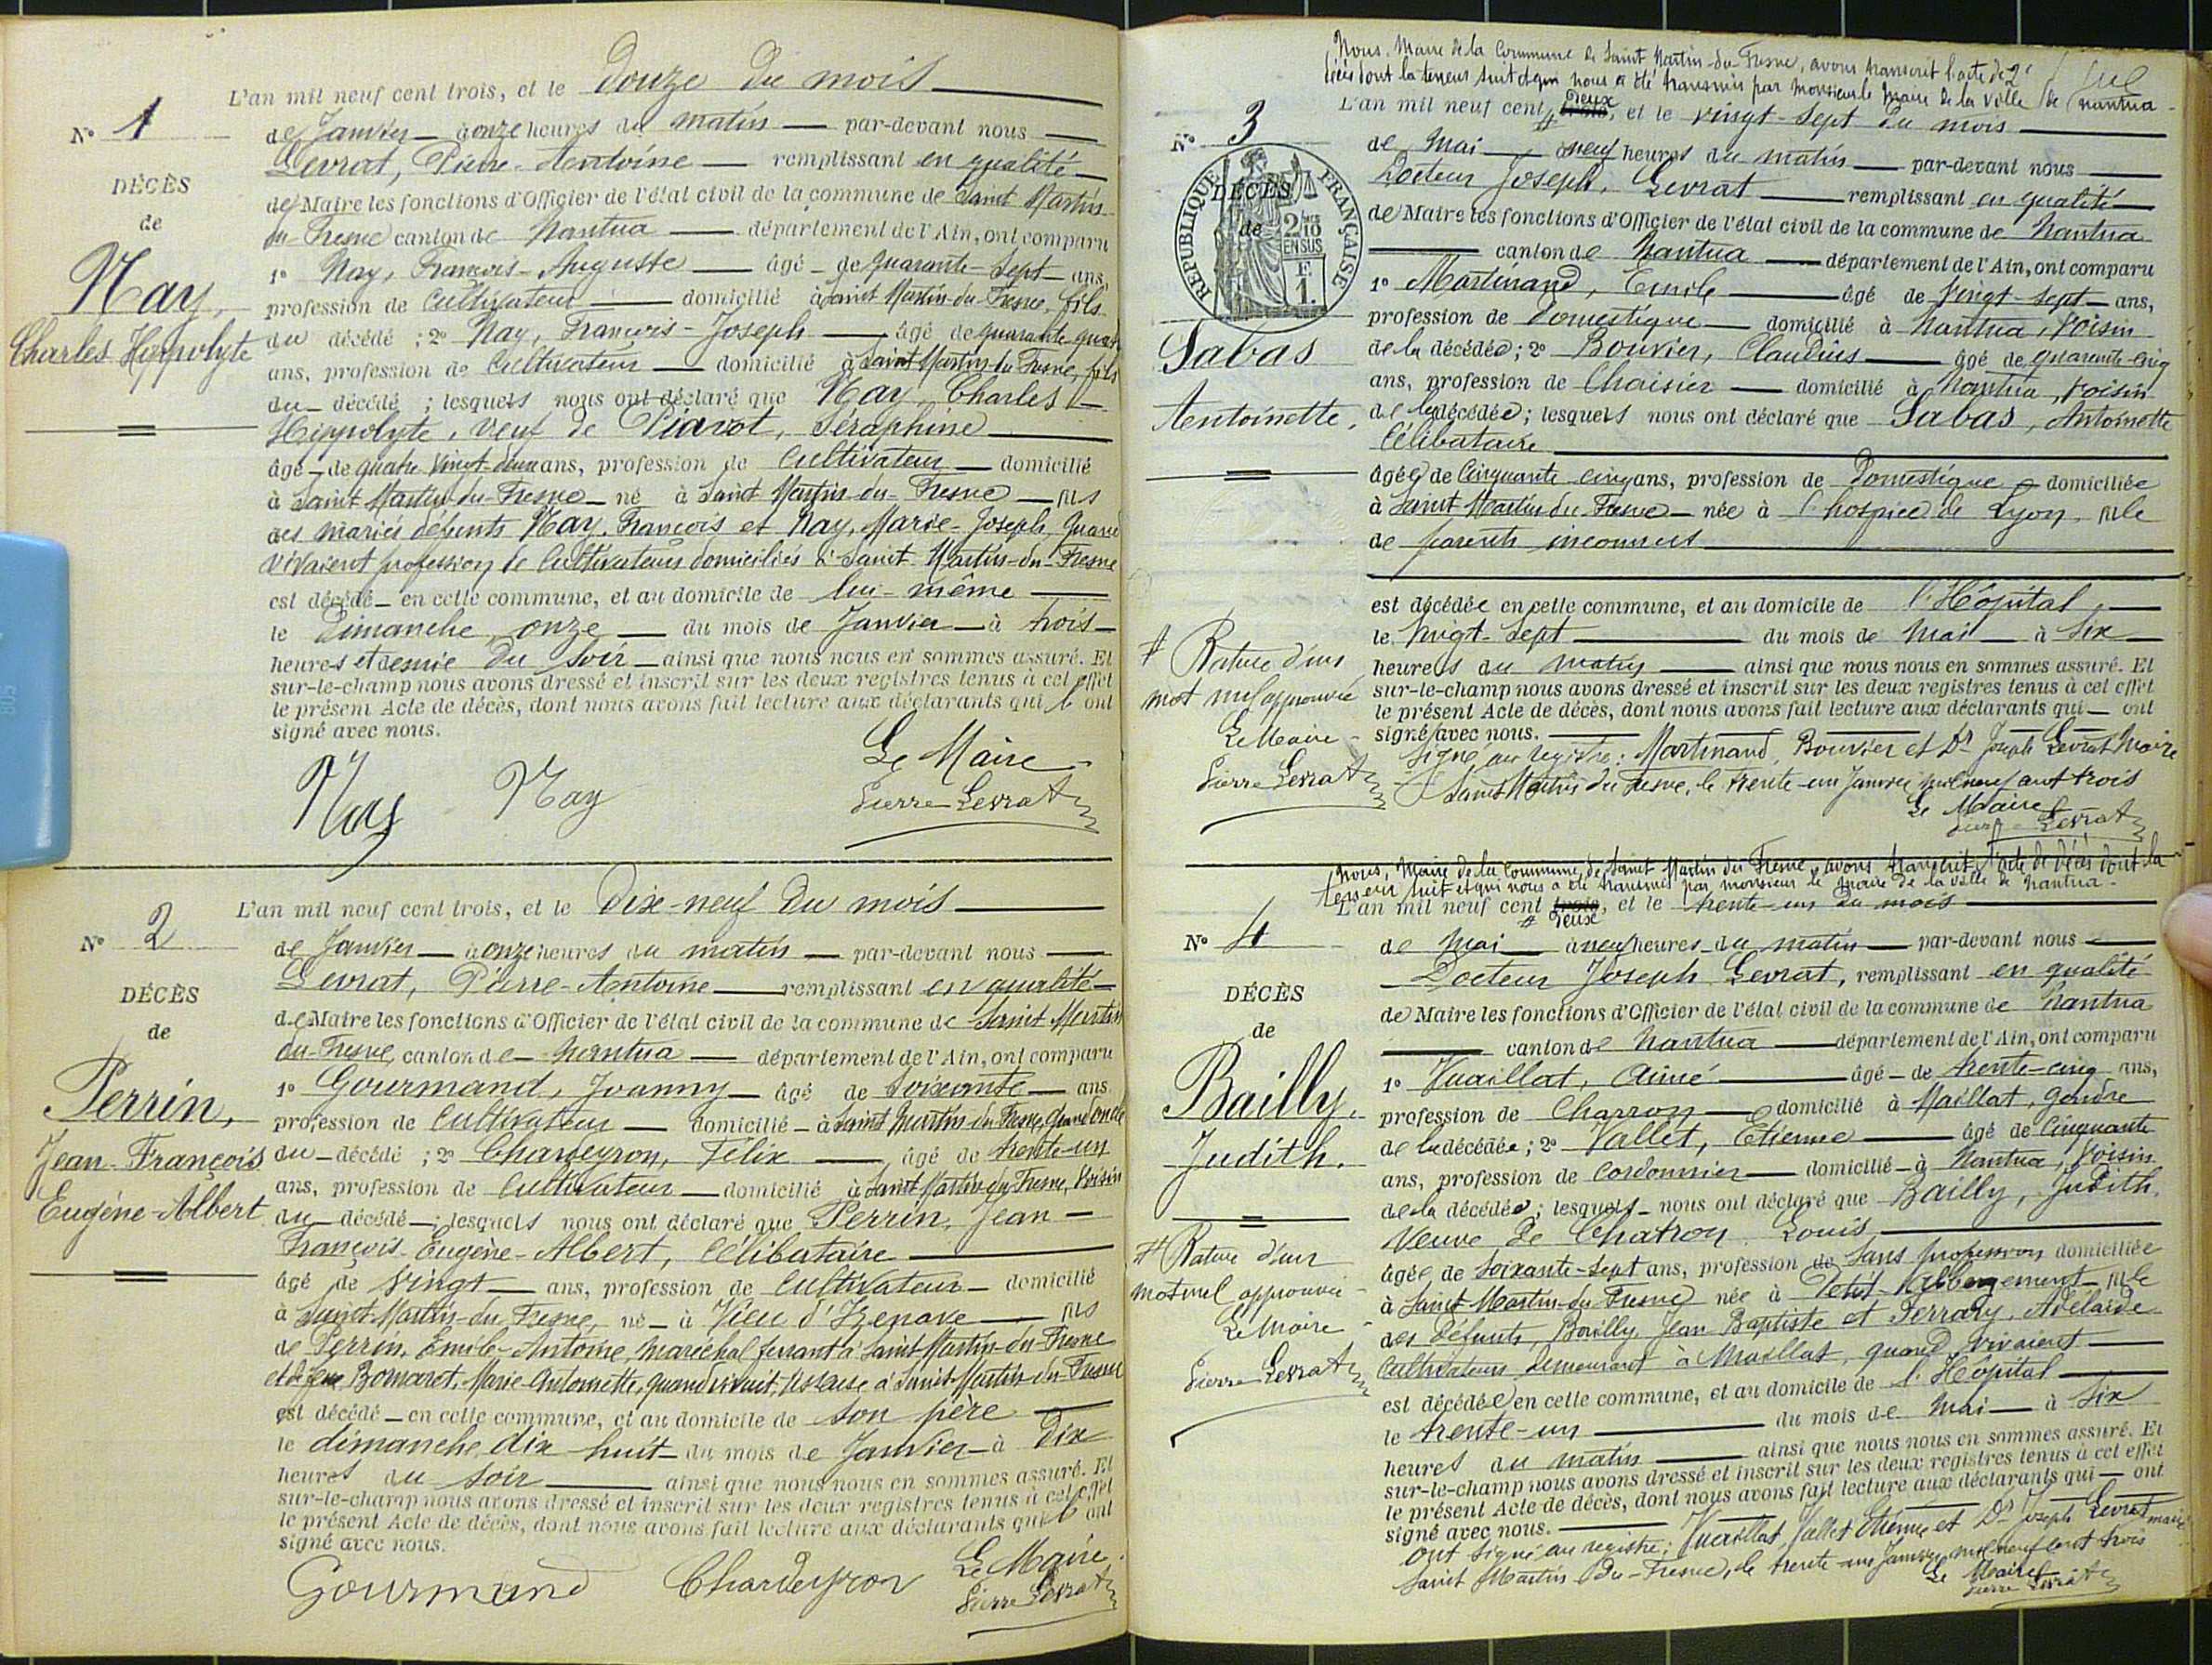 L'an mil neuf cent trois, et le Douze du mois
N° 1
de Janvier à onze heures du matin par-devant nous
Levrat, Pierre-Antoine remplissant en qualité
DÉCÈS
de Maire les fonctions d'Officier de l'état civil de la commune de Saint Martin-
de
du-Fresne canton de Nantua département de l'Ain, ont comparu
Nay,
1° Nay, François-Auguste âgé de quarante-sept ans,
profession de Cultivateur domicilié à Saint Martin-du-Fresne, fils
Charles Hippolyte
du décédé ; 2° Nay, François-Joseph âgé de quarante quatre
ans, profession de Cultivateur domicilié à Saint Martin-du-Fresne, fils
du décédé ; lesquels nous ont déclaré que Nay, Charles
Hippolyte, veuf de Piavot, Séraphine
âgé de quatre vingt-deux ans, profession de Cultivateur domicilié
à Saint Martin-du-Fresne né à Saint Martin-du-Fresne fils
des mariés défunts Nay, François et Nay, Marie-Joseph, quand
vivaient profession de Cultivateurs domiciliés à Saint-Martin-du-Fresne
est décédé en cette commune, et au domicile de lui-même
le Dimanche, onze du mois de Janvier à trois
heures et demie du soir ainsi que nous nous en sommes assuré. Et
sur-le-champ nous avons dressé et inscrit sur les deux registres tenus à cet effet
le présent Acte de décès, dont nous avons fait lecture aux déclarants qui l'ont
signé avec nous.
Nay Nay Le Maire
Pierre Levrat
L'an mil neuf cent trois, et le Dix-neuf du mois
N° 2
de Janvier à onze heures du matin par-devant nous
Levrat, Pierre-Antoine remplissant en qualité
DÉCÈS
de Maire les fonctions d'Officier de l'état civil de la commune de Saint Martin
de
du-Fresne, canton de Nantua département de l'Ain, ont comparu
Perrin,
1° Gourmand, Joanny âgé de Soixante ans
profession de Cultivateur domicilié à Saint Martin-du-Fresne, Grand oncle
Jean-François
du décédé ; 2° Chardeyron, Félix âgé de trente-un
ans, profession de Cultivateur domicilié à Saint Martin-du-Fresne, Voisin
Eugène-Albert
du décédé ; lesquels nous ont déclaré que Perrin, Jean-
François-Eugène-Albert, Célibataire
âgé de Vingt ans, profession de Cultivateur domicilié
à Saint-Martin-du-Fresne, né à Vieu d'Izenave fils
de Perrin, Emile-Antoine, Maréchal ferrant à Saint-Martin-du-Fresne
et de feue Bornarot, Marie-Antoinette, quand vivait, à Saint-Martin-du-Fresne
est décédé en cette commune, et au domicile de son père
le dimanche, dix-huit du mois de Janvier à Dix
heures du soir ainsi que nous nous en sommes assuré. Et
sur-le-champ nous avons dressé et inscrit sur les deux registres tenus à cet effet
le présent Acte de décès, dont nous avons fait lecture aux déclarants qui l'ont
signé avec nous.
Gourmand Chardeyron Le Maire
Pierre Levrat
Nous, Maire de la Commune de Saint Martin-du-Fresne, avons transcrit l'acte de
décès dont la teneur suit et qui nous a été transmis par monsieur le Maire de la ville de Nantua
L'an mil neuf cent # trois, deux et le vingt-sept du mois
N° 3
de Mai à neuf heures du matin par-devant nous
Docteur Joseph Levrat remplissant en qualité
RÉPUBLIQUE FRANÇAISE
2/10 EN SUS
F. 1.
DÉCÈS
de
de Maire les fonctions d'Officier de l'état civil de la commune de Nantua
canton de Nantua département de l'Ain, ont comparu
1° Martinand, Emile âgé de Vingt-sept ans,
profession de Domestique domicilié à Nantua, Voisin
Sabas
de la décédée ; 2° Bouvier, Claudius âgé de quarante cinq
ans, profession de Chaisier domicilié à Nantua, Voisin
Antoinette,
de la décédée ; lesquels nous ont déclaré que Sabas, Antoinette
Célibataire
âgée de Cinquante cinq ans, profession de Domestique domiciliée
à Saint Martin-du-Fresne née à l'hospice de Lyon fille
de parents inconnus
est décédée en cette commune, et au domicile de l'Hôpital
le Vingt-Sept du mois de Mai à Six
heures du matin ainsi que nous nous en sommes assuré. Et
sur-le-champ nous avons dressé et inscrit sur les deux registres tenus à cet effet
le présent Acte de décès, dont nous avons fait lecture aux déclarants qui ont
signé avec nous.
# Rature d'un
mot nul approuvée
Le Maire
Pierre Levrat
Signé au registre : Martinand, Bouvier et Dr Joseph Levrat Maire
Saint Martin du Fresne, le trente-un Janvier mil neuf cent trois
Le Maire
Pierre Levrat
Nous, Maire de la Commune de Saint Martin du Fresne, avons transcrit l'acte de décès dont la
teneur suit et qui nous a été transmis par monsieur le Maire de la ville de Nantua
L'an mil neuf cent trois, # deux et le trente-un du mois
N° 4
de Mai à neuf heures du matin par-devant nous
Docteur Joseph Levrat, remplissant en qualité
DÉCÈS
de Maire les fonctions d'Officier de l'état civil de la commune de Nantua
de
canton de Nantua département de l'Ain, ont comparu
Bailly,
1° Vuaillat, Aimé âgé de trente-cinq ans,
profession de Charron domicilié à Maillat, gendre
Judith.
de la décédée ; 2° Vallet, Etienne âgé de Cinquante
ans, profession de Cordonnier domicilié à Nantua, Voisin
de la décédée ; lesquels nous ont déclaré que Bailly, Judith,
Veuve de Chatron Louis
âgée de soixante-sept ans, profession de Sans profession domiciliée
à Saint-Martin-du-Fresne née à Petit-Abbergement fille
des défunts, Bailly Jean Baptiste et Ferrary, Adélaïde
Cultivateurs demeurant à Maillat, quand vivaient
est décédée en cette commune, et au domicile de l'Hôpital
le trente-un du mois de Mai à Six
heures du matin ainsi que nous nous en sommes assuré. Et
sur-le-champ nous avons dressé et inscrit sur les deux registres tenus à cet effet
le présent Acte de décès, dont nous avons fait lecture aux déclarants qui ont
signé avec nous.
# Rature d'un
mot nul approuvée
Le Maire
Pierre Levrat
ont signé au registre : Vuaillat, Vallet Etienne et Dr Joseph Levrat maire
Saint Martin-du-Fresne, le trente-un Janvier mil neuf cent trois
Le Maire
Pierre Levrat